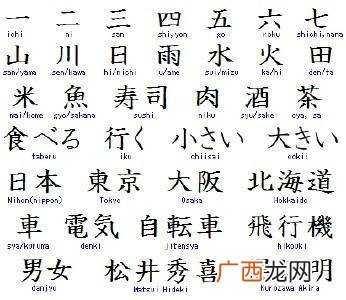 一 二 三 四 五 六 七
ichi ni san shi,yon go roku shichi,nana
山 川 日 雨 水 火 田
san/yama sen/kawa hi/nichi u/ame sui/mizu ka/hi den/ta
米 魚 寿司 肉 酒 茶
mai/kome gyo/sakana sushi niku syu/sake cya, sa
食べる 行く 小さい 大きい
taberu iku chiisai ookii
日本 東京 大阪 北海道
Nihon(nippon) Tokyo Osaka Hokkaido
車 電気 自転車 飛行機
sya/kuruma denki jitensya hikouki
男女 松井秀喜 明
danjyo Matsui Hideki Kurozawa Akira
广西龙网